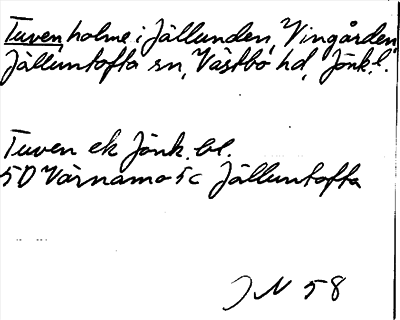 Tuven, holme i Jällunden, Vingården,
Jälluntofta sn, Västbo hd, Jönk. l.
Tuven ek Jönk. bl.
5D Värnamo 5c Jälluntofta
JN 58